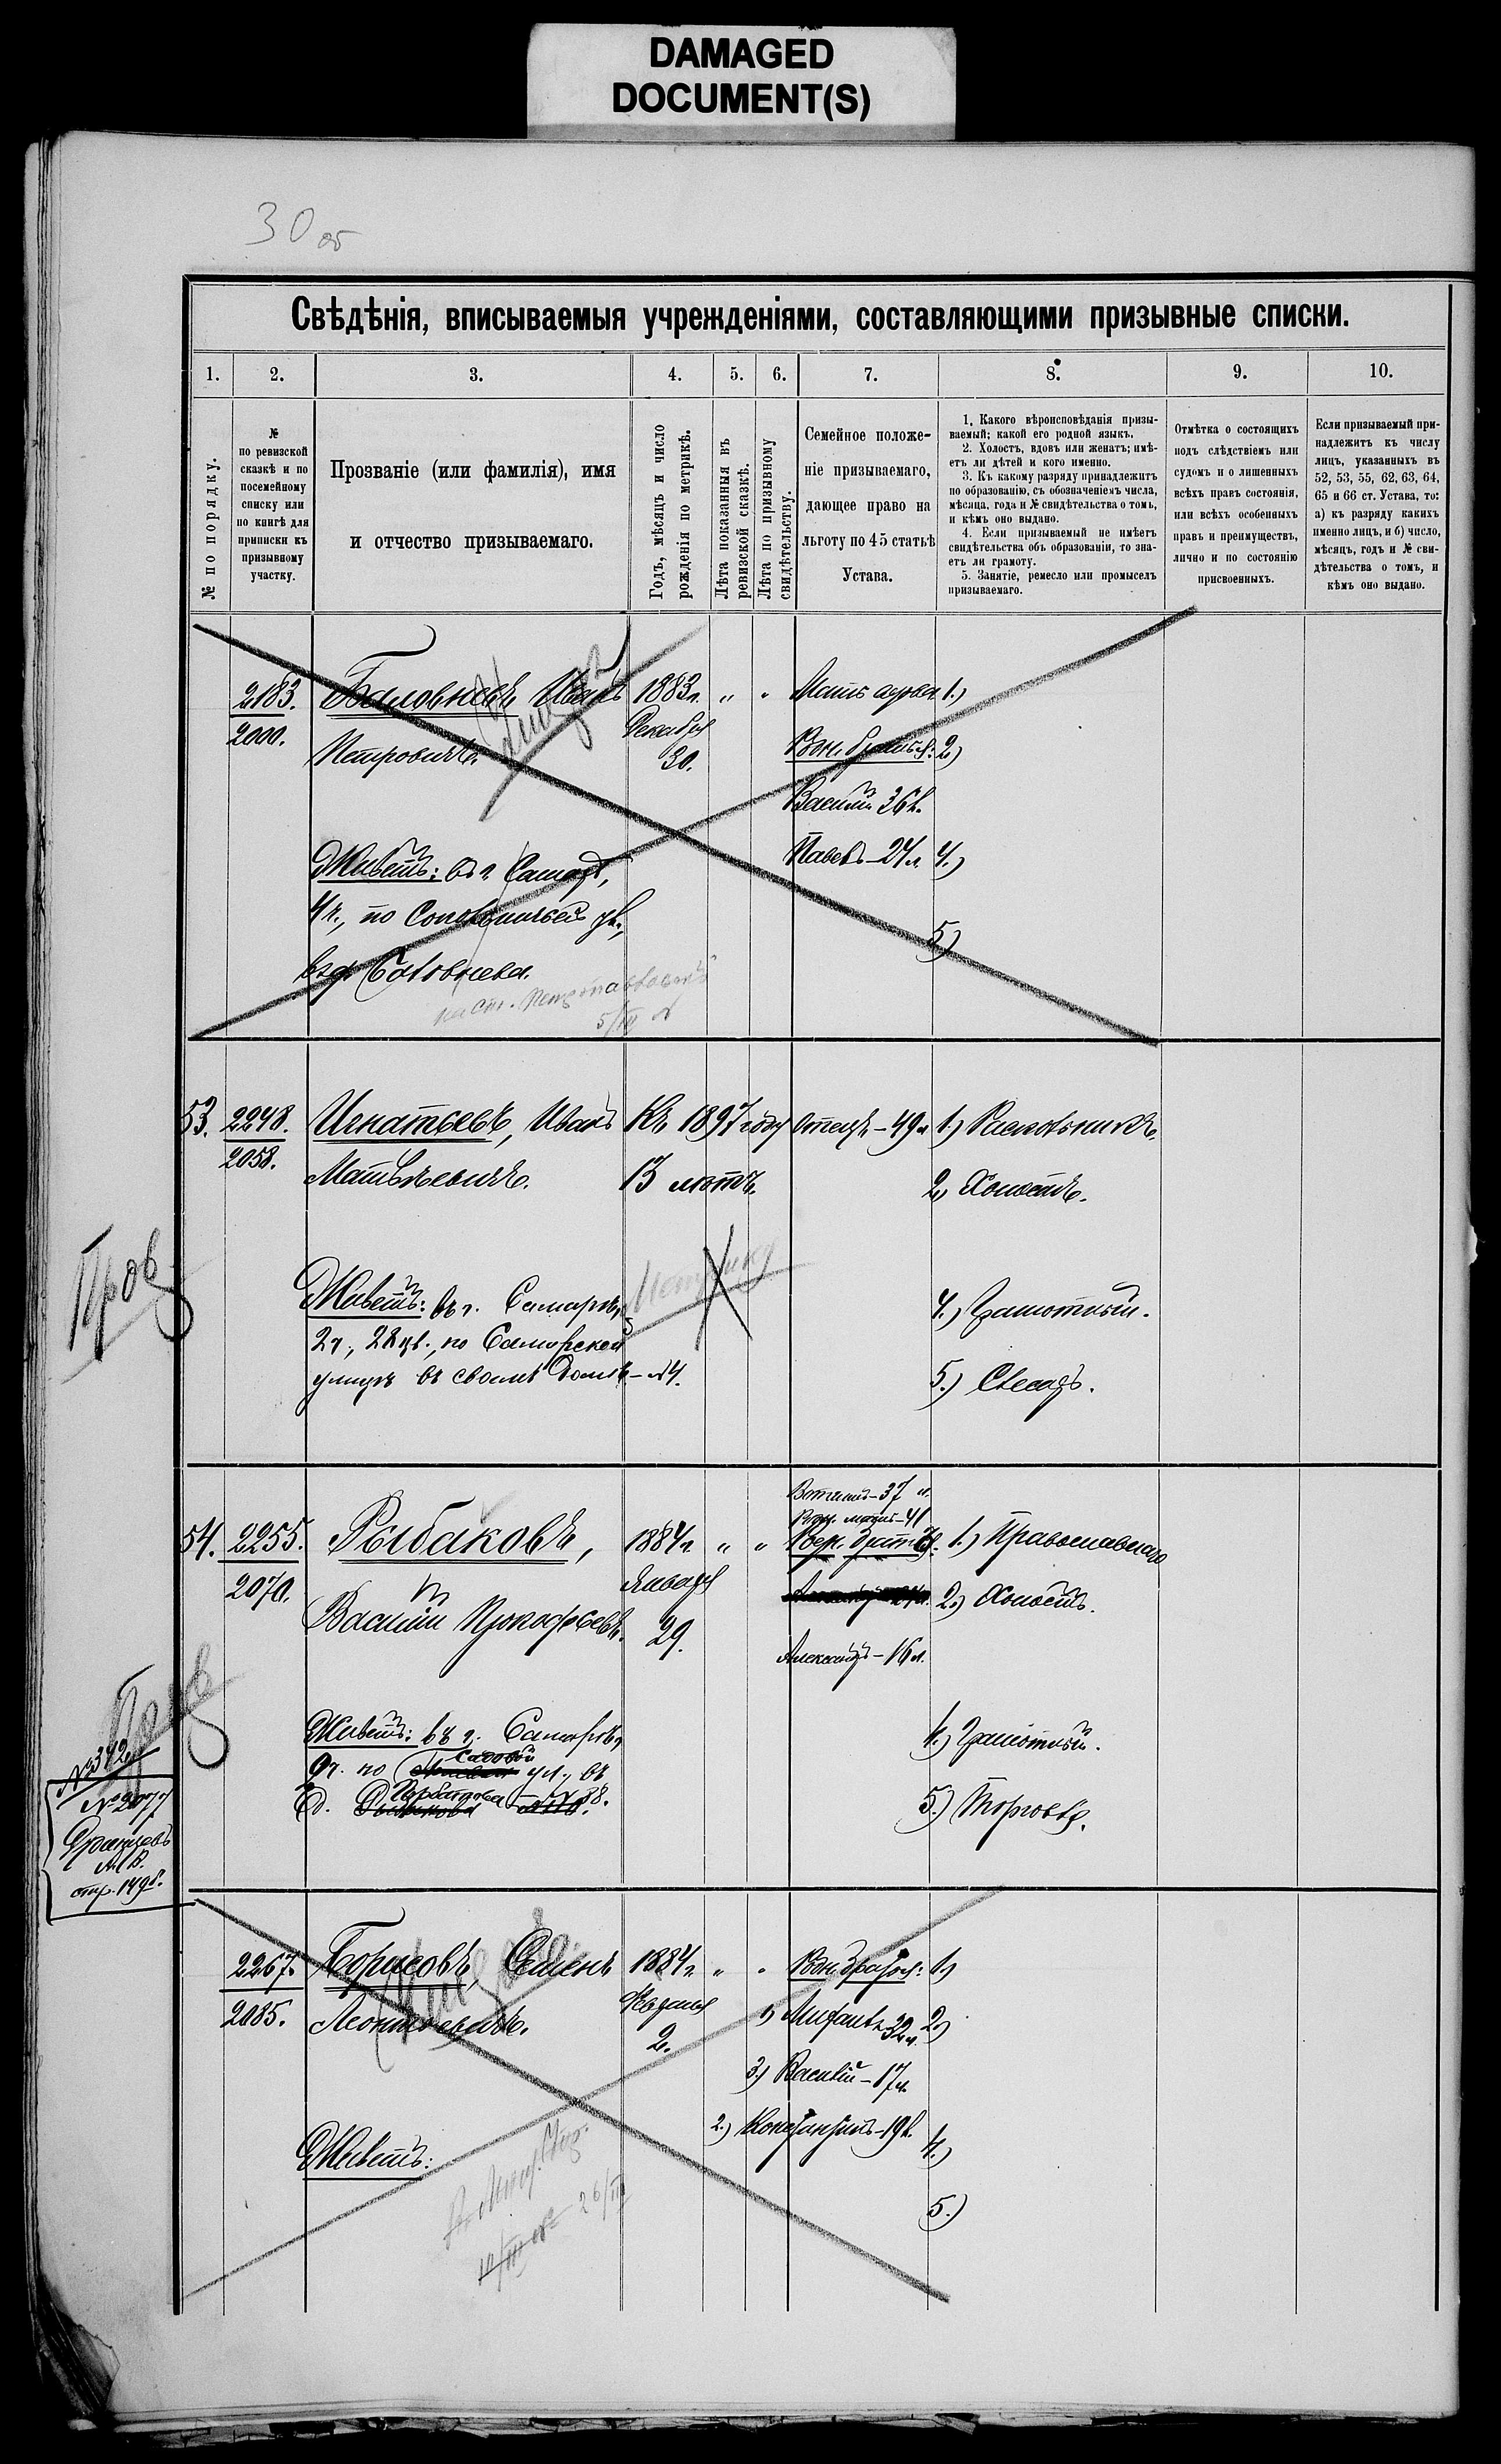 DAMAGED
DOCUMENT(S)
30 об
Свѣдѣнія, вписываемыя учрежденіями, составляющими призывные списки.
1. 2. 3. 4. 5. 6. 7. 8. 9. 10.
№ по порядку.
№
по ревизской
сказкѣ и по
посемейному
списку или
по книгѣ для
приписки къ
призывному
участку.
Прозваніе (или фамилія), имя
и отчество призываемаго.
Годъ, мѣсяцъ и число
рожденія по метрикѣ.
Лѣта показанныя въ
ревизской сказкѣ.
Лѣта по призывному
свидѣтельству.
Семейное положе-
ніе призываемаго,
дающее право на
льготу по 45 статьѣ
Устава.
1. Какого вѣроисповѣданія призы-
ваемый; какой его родной языкъ.
2. Холостъ, вдовъ или женатъ; имѣ-
етъ ли дѣтей и кого именно.
3. Къ какому разряду принадлежитъ
по образованію, съ обозначеніемъ числа,
мѣсяца, года и № свидѣтельства о томъ,
и кѣмъ оно выдано.
4. Если призываемый не имѣетъ
свидѣтельства объ образованіи, то зна-
етъ ли грамоту.
5. Занятіе, ремесло или промыселъ
призываемаго.
Отмѣтка о состоящихъ
подъ слѣдствіемъ или
судомъ и о лишенныхъ
всѣхъ правъ состоянія,
или всѣхъ особенныхъ
правъ и преимуществъ,
лично и по состоянію
присвоенныхъ.
Если призываемый при-
надлежитъ къ числу
лицъ, указанныхъ въ
52, 53, 55, 62, 63, 64,
65 и 66 ст. Устава, то:
а) къ разряду какихъ
именно лицъ, и б) число,
мѣсяцъ, годъ и № сви-
дѣтельства о томъ, и
кѣмъ оно выдано.
2183. Баловневъ, Иванъ 1883 г. " " Мать 1.)
2000. Петровичъ. Декабря Род. братья: 2)
30.
Василій 36 л.
Живетъ: въ г. Самарѣ, Павелъ - 24 л. 4.)
4 ч., по ул.,
5.)
въ д. Баловнева.
5/III
53. 2248. Игнатьевъ, Иванъ Къ 1897 году Отецъ - 49 л. 1.) Раскольникъ.
2058. Матвѣевичъ. 13 лѣтъ. 2.) Холостъ.
Пров
Живетъ: въ г. Самарѣ, 4.) Грамотный.
2 ч., 28 кв., по Самарской
улицѣ въ своемъ домѣ - № 4. 5.) Слесарь.
Вотчимъ - 37 л.
Род. мать - 41
54. 2255. Рыбаковъ, 1884 г. " " Род. братья: 1.) Православнаго
2070. Января 2.) Холостъ.
Василій Прокофьевъ. 29.
Александръ - 16 л.
Живетъ: въ г. Самарѣ, 4.) Грамотный.
Садовой
по ул., въ
Горбатова 38.
д. 5.) Торговля.
№ 342
№ 2077
А. В.
стр. 1495.
2267. Борисовъ, Семенъ 1884 г. " " Род. братья: 1.)
2085. Леонтьевичъ. Февраля 1) 32 л. 2.)
2.
3.) Василій - 17 л.
2.) Константинъ - 19 л. 4.)
Живетъ:
5.)
26/III